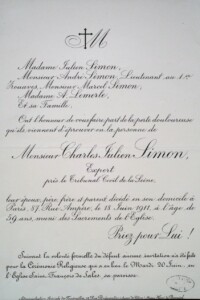 M
Madame Julien Simon,
Monsieur André Simon, Lieutenant au 1er
Zouaves, Monsieur Marcel Simon,
Madame A. Lemerle,
Et sa Famille,
Ont l'honneur de vous faire part de la perte douloureuse
qu'ils viennent d'éprouver en la personne de
Monsieur Charles Julien Simon,
Expert
près le Tribunal Civil de la Seine,
leur époux, père, frère et parent décédé en son domicile à
Paris 37, Rue Ampère, le 18 Juin 1911, à l'âge de
59 ans, muni des Sacrements de l'Église.
Priez pour Lui !
Suivant la volonté formelle du défunt aucune invitation n'a été faite
pour la Cérémonie Religieuse qui a eu lieu le Mardi 20 Juin, en
l'Église Saint François de Sales, sa paroisse.